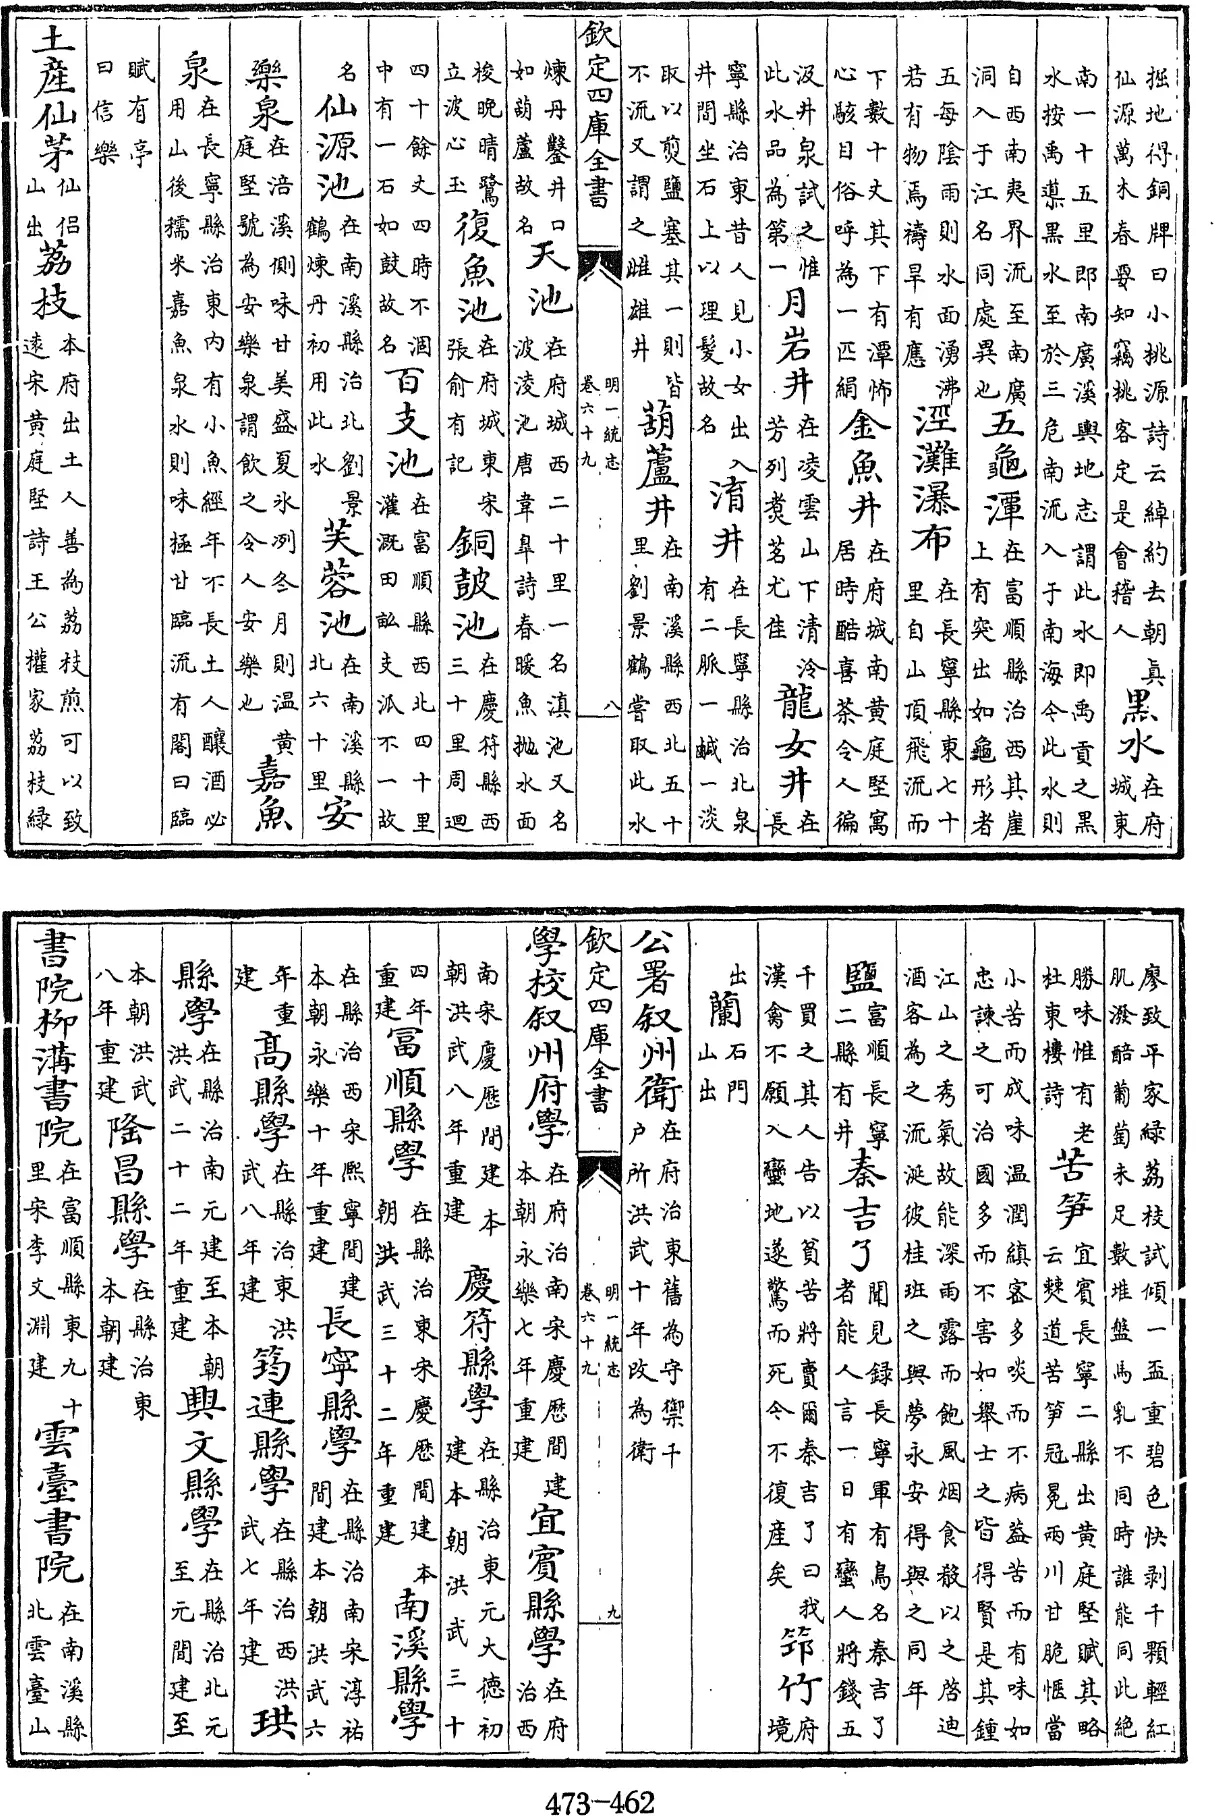 掘地得銅牌曰小桃源詩云綽約去朝真仙源萬木春要知竊桃客定是會稽人黑水在府城東
南一十五里即南廣溪輿地志謂此水即禹貢之黑水按禹導黑水至於三危南流入于南海今此水則
自西南夷界流至南廣洞入于江名同處異也五龜潭在富順縣治西其崖上有突出如龜形者
五每陰雨則水面湧沸若有物焉禱旱有應涇灘瀑布在長寧縣東七十里自山頂飛流而
下數十丈其下有潭怖心駭目俗呼為一匹絹金魚井在府城南黄庭堅寓居時酷喜茶令人徧
汲井泉試之惟此水品為第一月岩井在凌雲山下清泠芳列煑茗尤佳龍女井在長
寧縣治東昔人見小女出入井間坐石上以理髮故名淯井在長寧縣治北泉有二脈一鹹一淡
取以煎鹽塞其一則皆不流又謂之雌雄井葫蘆井在南溪縣西北五十里劉景鶴嘗取此水
欽定四庫全書 明一統志卷六十九 八
煉丹鑿井口如葫蘆故名天池在府城西二十里一名滇池又名波淩池唐韋臯詩春暖魚抛水面
梭晚晴鷺立波心玉復魚池在府城東宋張俞有記銅鼓池在慶符縣西三十里周迴
四十餘丈四時不涸中有一石如鼓故名百支池在富順縣西北四十里灌溉田畝支派不一故
名仙源池在南溪縣治北劉景鶴煉丹初用此水芙蓉池在南溪縣北六十里安
樂泉在涪溪側味甘美盛夏氷冽冬月則温黄庭堅號為安樂泉謂飲之令人安樂也嘉魚
泉在長寧縣治東内有小魚經年不長土人釀酒必用山後糯米嘉魚泉水則味極甘臨流有閣曰臨
賦有亭曰信樂
土産仙茅仙侣山出荔枝本府出土人善為荔枝煎可以致遠宋黄庭堅詩王公權家荔枝緑
廖致平家緑荔枝試傾一盃重碧色快剥千顆輕紅肌潑醅葡萄未足數堆盤馬乳不同時誰能同此絶
勝味惟有老杜東樓詩苦笋宜賓長寧二縣出黄庭堅賦其略云僰道苦笋冠冕兩川甘脆愜當
小苦而成味温潤縝密多啖而不病葢苦而有味如忠諫之可治國多而不害如舉士之皆得賢是其鍾
江山之秀氣故能深雨露而飽風烟食殽以之啓迪酒客為之流涎彼桂班之與夢永安得與之同年
鹽富順長寧二縣有井秦吉了聞見録長寧軍有鳥名秦吉了者能人言一日有蠻人將錢五
千買之其人告以貧苦將賣爾秦吉了曰我漢禽不願入蠻地遂驚而死今不復産矣筇竹府境
出蘭石門山出
公署叙州衛在府治東舊為守禦千户所洪武十年改為衛
欽定四庫全書 明一統志卷六十九 九
學校叙州府學在府治南宋慶歴間建本朝永樂七年重建宜賓縣學在府治西
南宋慶歴間建本朝洪武八年重建慶符縣學在縣治東元大德初建本朝洪武三十
四年重建富順縣學在縣治東宋慶歴間建本朝洪武三十二年重建南溪縣學
在縣治西宋熙寧間建本朝永樂十年重建長寧縣學在縣治南宋淳祐間建本朝洪武六
年重建高縣學在縣治東洪武八年建筠連縣學在縣治西洪武七年建珙
縣學在縣治南元建至本朝洪武二十二年重建興文縣學在縣治北元至元間建至
本朝洪武八年重建隆昌縣學在縣治東本朝建
書院柳溝書院在富順縣東九十里宋李文淵建雲臺書院在南溪縣北雲臺山
473-462